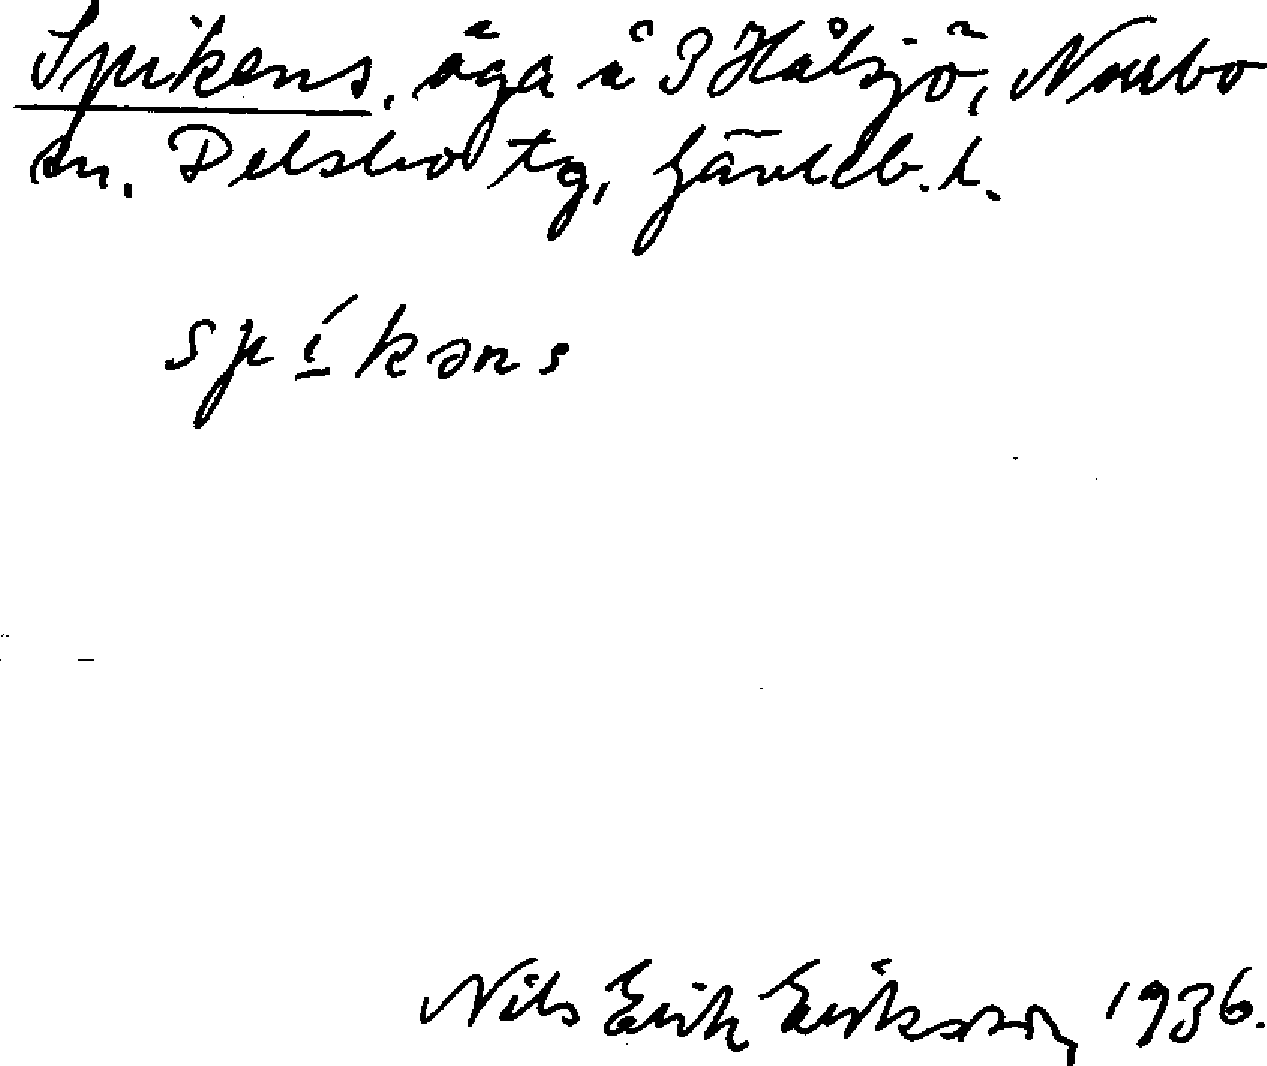 Spikens, äga i S Hålsjö, Norrbo
sn. Delsbo tg, Gävleb. l.
spíkəns
Nils Erik Eriksson, 1936.